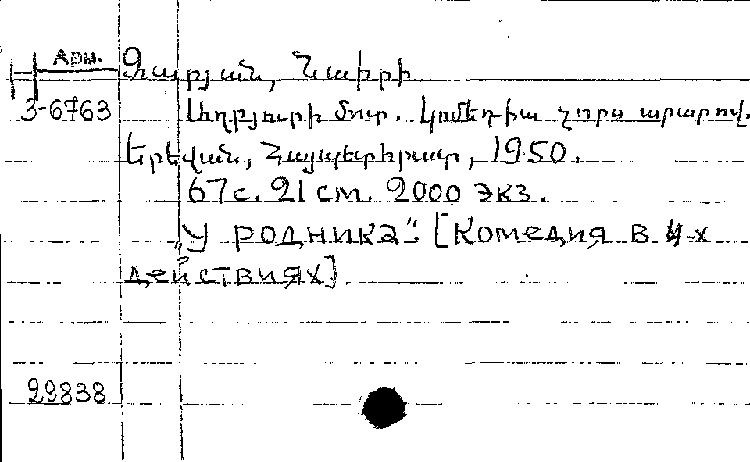 Арм.
Զարյան, Նաիրի
3-6763
Աղբյուրի մոտ. Կոմեդիա չորս արարով.
Երեվան, Հայպետհրատ, 1950.
67 с. 21 см. 2000 экз.
„У родника“. [Комедия в 4-х
действиях]
29838